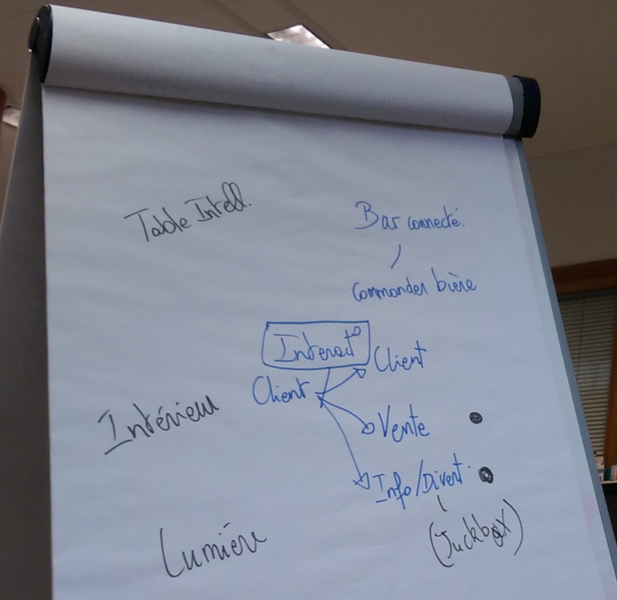 Table Intell.
Bar connecté.
Commander bière
Interact°
Client
Client
Vente
Intérieur
Info/Divert.
(Juckbox)
Lumière